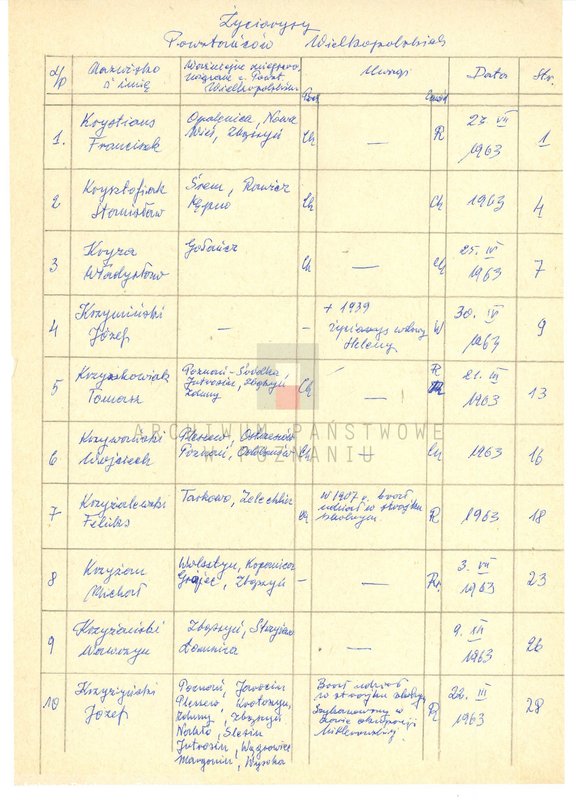 Życiorysy
Powstańców Wielkopolskich
L/p Nazwisko i imię Ważniejsze miejscow. Powst. Wielkopolskim Uwagi Data Str.
1. Krystians Franciszek Opalenica, Nowa Wieś, Zbąszyń Ch — R 27. VII 1963 1
2 Krysztofiak Stanisław Śrem, Rawicz Kępno Ch Ch 1963 4
3 Kryza Władysław Gołańcz Ch — Ch 25. IV 1963 7
4 Krzymiński Józef — — + 1939 życiorys wdowy Heleny W 30. IV 1963 9
5 Krzyszkowiak Tomasz Poznań-Śródka, Jutrosin, Zbąszyń Zduny Ch — R 21. III 1963 13
6 Krzywański Wojciech Pleszew, Ostrzeszów Poznań, Ch — Ch 1963 16
7 Krzyżalewski Feliks Tarkowo, Ch W 1907 r. brał udział w strajku szkolnym R 1963 18
8 Krzyżan Michał Wolsztyn, Kopanica Grójec, Zbąszyń — — R. 3. VII 1963 23
9 Krzyżański Wawrzyn Zbąszyń, Łomnica — 9. III 1963 26
10 Krzyżyński Józef Poznań, Jarocin Pleszew, Krotoszyn, Zduny, Zbąszyń Nakło, Ślesin Jutrosin, Wągrowiec Margonin, Wysoka Brał udział w strajku szkolnym, Szykanowany w czasie okupacji hitlerowskiej. R 22. III 1963 28
ARCHIWUM PAŃSTWOWE
W POZNANIU